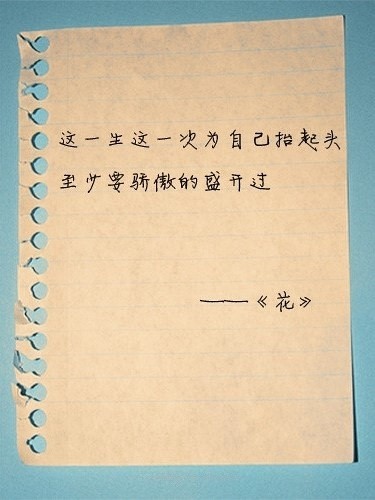 这一生这一次为自己抬起头
至少要骄傲的盛开过
——《花》